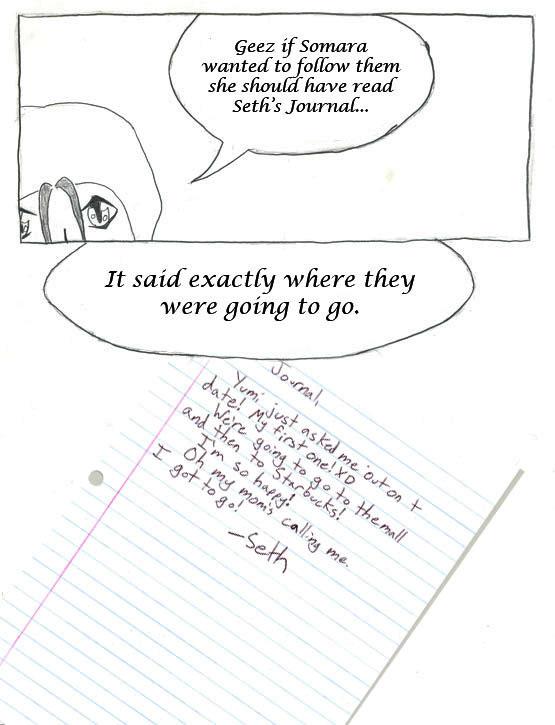 Geez if Somara
wanted to follow them
she should have read
Seth's Journal...
It said exactly where they
were going to go.
Journal,
Yumi just asked me out on t
date! My first one! XD
We're going to go to the mall
and then to Starbucks!
I'm so happy!
Oh my mom's calling me.
I got to go!
-Seth